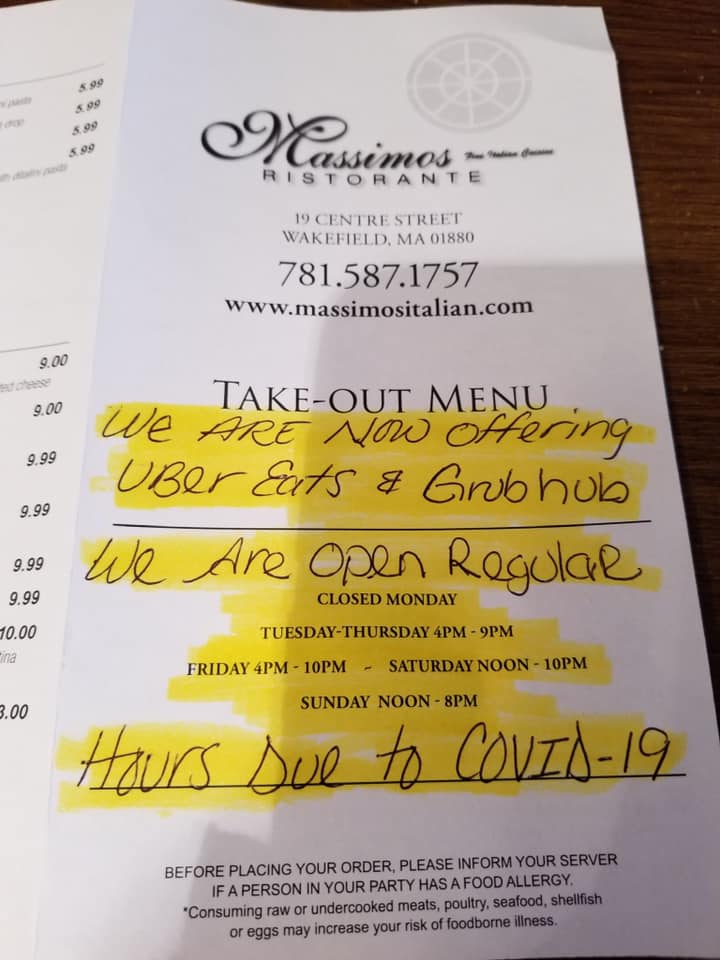 5.99
5.99
5.99
5.99
pasta
drop
ditalini pasta
9.00
cheese
9.00
9.99
9.99
9.99
9.99
10.00
Massimos Fine Italian Cuisine
RISTORANTE
19 CENTRE STREET
WAKEFIELD, MA 01880
781.587.1757
www.massimositalian.com
TAKE-OUT MENU
We ARE NOW Offering
UBer Eats & Grubhub
We Are Open RegulaR
CLOSED MONDAY
TUESDAY-THURSDAY 4PM - 9PM
FRIDAY 4PM - 10PM ~ SATURDAY NOON - 10PM
SUNDAY NOON - 8PM
Hours Due to COVID-19
BEFORE PLACING YOUR ORDER, PLEASE INFORM YOUR SERVER
IF A PERSON IN YOUR PARTY HAS A FOOD ALLERGY.
*Consuming raw or undercooked meats, poultry, seafood, shellfish
or eggs may increase your risk of foodborne illness.